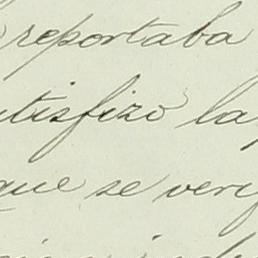 reportaba
tisfizo la
que se veri